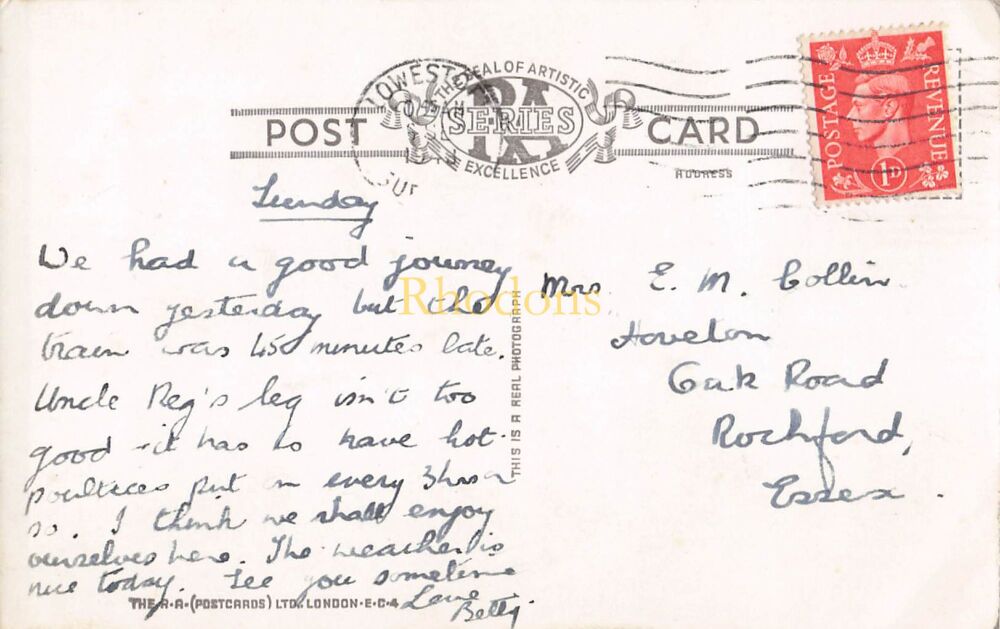 LOWESTOFT
SUF
THE SEAL OF ARTISTIC
POST RA SERIES CARD
EXCELLENCE
ADDRESS
POSTAGE
REVENUE
1D
Sunday
We had a good journey
down yesterday but the
train was 45 minutes late.
Uncle Reg's leg isn't too
good - it has to have hot
poultices put on every 3hrs or
so. I think we shall enjoy
ourselves here. The weather is
nice today. See you sometime
Love
Betty.
THIS IS A REAL PHOTOGRAPH
Mrs. E. M. Collin
Hoveton
Oak Road
Rochford,
Essex.
THE R.A. (POSTCARDS) LTD. LONDON.E.C.4
Rhodons